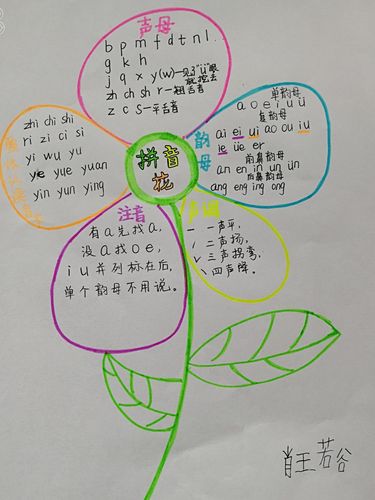 声母
b p m f d t n l
g k h
j q x y (w)一见了"ü"眼就挖去
zh ch sh r一翘舌音
z c s一平舌音
韵母
单韵母
a o e i u ü
复韵母
ai ei ui ao ou iu
ie üe er
前鼻韵母
an en in un ün
后鼻韵母
ang eng ing ong
zhi chi shi
ri zi ci si
yi wu yu
ye yue yuan
yin yun ying
拼音花
声调
一 一声平,
/ 二声扬,
∨ 三声拐弯,
\ 四声降。
注音
有a先找a,
没a找oe,
iu并列标在后,
单个韵母不用说。
肖王若谷